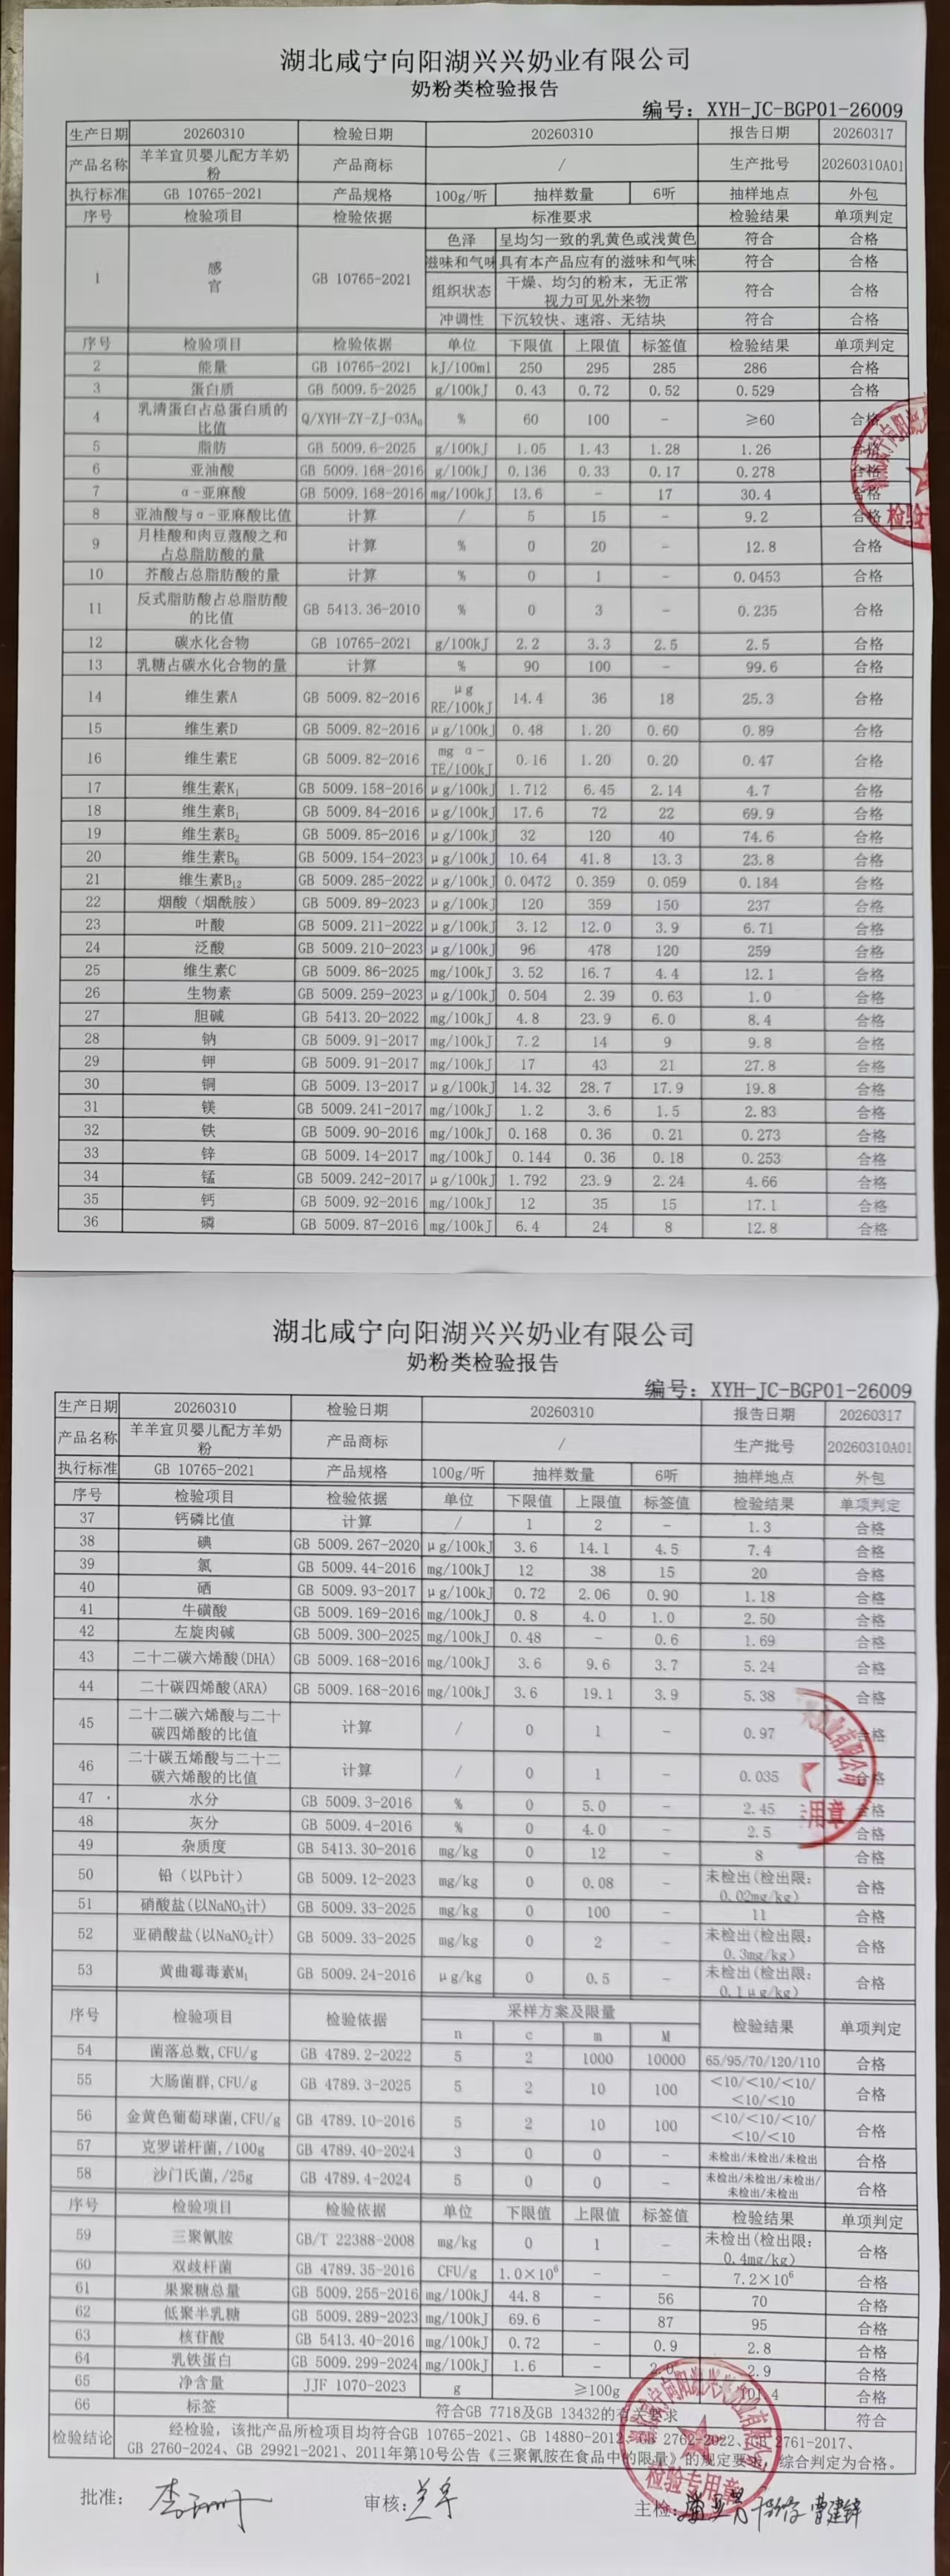 湖北咸宁向阳湖兴兴奶业有限公司
奶粉类检验报告
编号：XYH-JC-BGP01-26009
生产日期 20260310 检验日期 20260310 报告日期 20260317
产品名称 羊羊宜贝婴儿配方羊奶粉 产品商标 / 生产批号 20260310A01
执行标准 GB 10765-2021 产品规格 100g/听 抽样数量 6听 抽样地点 外包
序号 检验项目 检验依据 标准要求 检验结果 单项判定
1 感官 GB 10765-2021 色泽 呈均匀一致的乳黄色或浅黄色 符合 合格
滋味和气味 具有本产品应有的滋味和气味 符合 合格
组织状态 干燥、均匀的粉末，无正常视力可见外来物 符合 合格
冲调性 下沉较快、速溶、无结块 符合 合格
序号 检验项目 检验依据 单位 下限值 上限值 标签值 检验结果 单项判定
2 能量 GB 10765-2021 kJ/100ml 250 295 285 286 合格
3 蛋白质 GB 5009.5-2025 g/100kJ 0.43 0.72 0.52 0.529 合格
4 乳清蛋白占总蛋白质的比值 Q/XYH-ZY-ZJ-03A₆ % 60 100 - ≥60 合格
5 脂肪 GB 5009.6-2025 g/100kJ 1.05 1.43 1.28 1.26 合格
6 亚油酸 GB 5009.168-2016 g/100kJ 0.136 0.33 0.17 0.278 合格
7 α-亚麻酸 GB 5009.168-2016 mg/100kJ 13.6 - 17 30.4 合格
8 亚油酸与α-亚麻酸比值 计算 / 5 15 - 9.2 合格
9 月桂酸和肉豆蔻酸之和占总脂肪酸的量 计算 % 0 20 - 12.8 合格
10 芥酸占总脂肪酸的量 计算 % 0 1 - 0.0453 合格
11 反式脂肪酸占总脂肪酸的比值 GB 5413.36-2010 % 0 3 - 0.235 合格
12 碳水化合物 GB 10765-2021 g/100kJ 2.2 3.3 2.5 2.5 合格
13 乳糖占碳水化合物的量 计算 % 90 100 - 99.6 合格
14 维生素A GB 5009.82-2016 μg RE/100kJ 14.4 36 18 25.3 合格
15 维生素D GB 5009.82-2016 μg/100kJ 0.48 1.20 0.60 0.89 合格
16 维生素E GB 5009.82-2016 mg α-TE/100kJ 0.16 1.20 0.20 0.47 合格
17 维生素K₁ GB 5009.158-2016 μg/100kJ 1.712 6.45 2.14 4.7 合格
18 维生素B₁ GB 5009.84-2016 μg/100kJ 17.6 72 22 69.9 合格
19 维生素B₂ GB 5009.85-2016 μg/100kJ 32 120 40 74.6 合格
20 维生素B₆ GB 5009.154-2023 μg/100kJ 10.64 41.8 13.3 23.8 合格
21 维生素B₁₂ GB 5009.285-2022 μg/100kJ 0.0472 0.359 0.059 0.184 合格
22 烟酸（烟酰胺） GB 5009.89-2023 μg/100kJ 120 359 150 237 合格
23 叶酸 GB 5009.211-2022 μg/100kJ 3.12 12.0 3.9 6.71 合格
24 泛酸 GB 5009.210-2023 μg/100kJ 96 478 120 259 合格
25 维生素C GB 5009.86-2025 mg/100kJ 3.52 16.7 4.4 12.1 合格
26 生物素 GB 5009.259-2023 μg/100kJ 0.504 2.39 0.63 1.0 合格
27 胆碱 GB 5413.20-2022 mg/100kJ 4.8 23.9 6.0 8.4 合格
28 钠 GB 5009.91-2017 mg/100kJ 7.2 14 9 9.8 合格
29 钾 GB 5009.91-2017 mg/100kJ 17 43 21 27.8 合格
30 铜 GB 5009.13-2017 μg/100kJ 14.32 28.7 17.9 19.8 合格
31 镁 GB 5009.241-2017 mg/100kJ 1.2 3.6 1.5 2.83 合格
32 铁 GB 5009.90-2016 mg/100kJ 0.168 0.36 0.21 0.273 合格
33 锌 GB 5009.14-2017 mg/100kJ 0.144 0.36 0.18 0.253 合格
34 锰 GB 5009.242-2017 μg/100kJ 1.792 23.9 2.24 4.66 合格
35 钙 GB 5009.92-2016 mg/100kJ 12 35 15 17.1 合格
36 磷 GB 5009.87-2016 mg/100kJ 6.4 24 8 12.8 合格
湖北咸宁向阳湖兴兴奶业有限公司
奶粉类检验报告
编号：XYH-JC-BGP01-26009
生产日期 20260310 检验日期 20260310 报告日期 20260317
产品名称 羊羊宜贝婴儿配方羊奶粉 产品商标 / 生产批号 20260310A01
执行标准 GB 10765-2021 产品规格 100g/听 抽样数量 6听 抽样地点 外包
序号 检验项目 检验依据 单位 下限值 上限值 标签值 检验结果 单项判定
37 钙磷比值 计算 / 1 2 - 1.3 合格
38 碘 GB 5009.267-2020 μg/100kJ 3.6 14.1 4.5 7.4 合格
39 氯 GB 5009.44-2016 mg/100kJ 12 38 15 20 合格
40 硒 GB 5009.93-2017 μg/100kJ 0.72 2.06 0.90 1.18 合格
41 牛磺酸 GB 5009.169-2016 mg/100kJ 0.8 4.0 1.0 2.50 合格
42 左旋肉碱 GB 5009.300-2025 mg/100kJ 0.48 - 0.6 1.69 合格
43 二十二碳六烯酸(DHA) GB 5009.168-2016 mg/100kJ 3.6 9.6 3.7 5.24 合格
44 二十碳四烯酸(ARA) GB 5009.168-2016 mg/100kJ 3.6 19.1 3.9 5.38 合格
45 二十二碳六烯酸与二十碳四烯酸的比值 计算 / 0 1 - 0.97 合格
46 二十碳五烯酸与二十二碳六烯酸的比值 计算 / 0 1 - 0.035 合格
47 水分 GB 5009.3-2016 % 0 5.0 - 2.45 合格
48 灰分 GB 5009.4-2016 % 0 4.0 - 2.5 合格
49 杂质度 GB 5413.30-2016 mg/kg 0 12 - 8 合格
50 铅（以Pb计） GB 5009.12-2023 mg/kg 0 0.08 - 未检出(检出限：0.02mg/kg) 合格
51 硝酸盐(以NaNO₃计) GB 5009.33-2025 mg/kg 0 100 - 11 合格
52 亚硝酸盐(以NaNO₂计) GB 5009.33-2025 mg/kg 0 2 - 未检出(检出限：0.3mg/kg) 合格
53 黄曲霉毒素M₁ GB 5009.24-2016 μg/kg 0 0.5 - 未检出(检出限：0.1μg/kg) 合格
序号 检验项目 检验依据 采样方案及限量 检验结果 单项判定
n c m M
54 菌落总数,CFU/g GB 4789.2-2022 5 2 1000 10000 65/95/70/120/110 合格
55 大肠菌群,CFU/g GB 4789.3-2025 5 2 10 100 <10/<10/<10/<10/<10 合格
56 金黄色葡萄球菌,CFU/g GB 4789.10-2016 5 2 10 100 <10/<10/<10/<10/<10 合格
57 克罗诺杆菌,/100g GB 4789.40-2024 3 0 0 - 未检出/未检出/未检出 合格
58 沙门氏菌,/25g GB 4789.4-2024 5 0 0 - 未检出/未检出/未检出/未检出/未检出 合格
序号 检验项目 检验依据 单位 下限值 上限值 标签值 检验结果 单项判定
59 三聚氰胺 GB/T 22388-2008 mg/kg 0 1 - 未检出(检出限：0.4mg/kg) 合格
60 双歧杆菌 GB 4789.35-2016 CFU/g 1.0×10⁶ - - 7.2×10⁶ 合格
61 果聚糖总量 GB 5009.255-2016 mg/100kJ 44.8 - 56 70 合格
62 低聚半乳糖 GB 5009.289-2023 mg/100kJ 69.6 - 87 95 合格
63 核苷酸 GB 5413.40-2016 mg/100kJ 0.72 - 0.9 2.8 合格
64 乳铁蛋白 GB 5009.299-2024 mg/100kJ 1.6 - 2.0 2.9 合格
65 净含量 JJF 1070-2023 g ≥100g 101.4 合格
66 标签 符合GB 7718及GB 13432的有关要求 符合
检验结论 经检验，该批产品所检项目均符合GB 10765-2021、GB 14880-2012、GB 2762-2022、GB 2761-2017、
GB 2760-2024、GB 29921-2021、2011年第10号公告《三聚氰胺在食品中的限量》的规定要求，综合判定为合格。
批准： 审核： 主检： 曹建锌
检验专用章